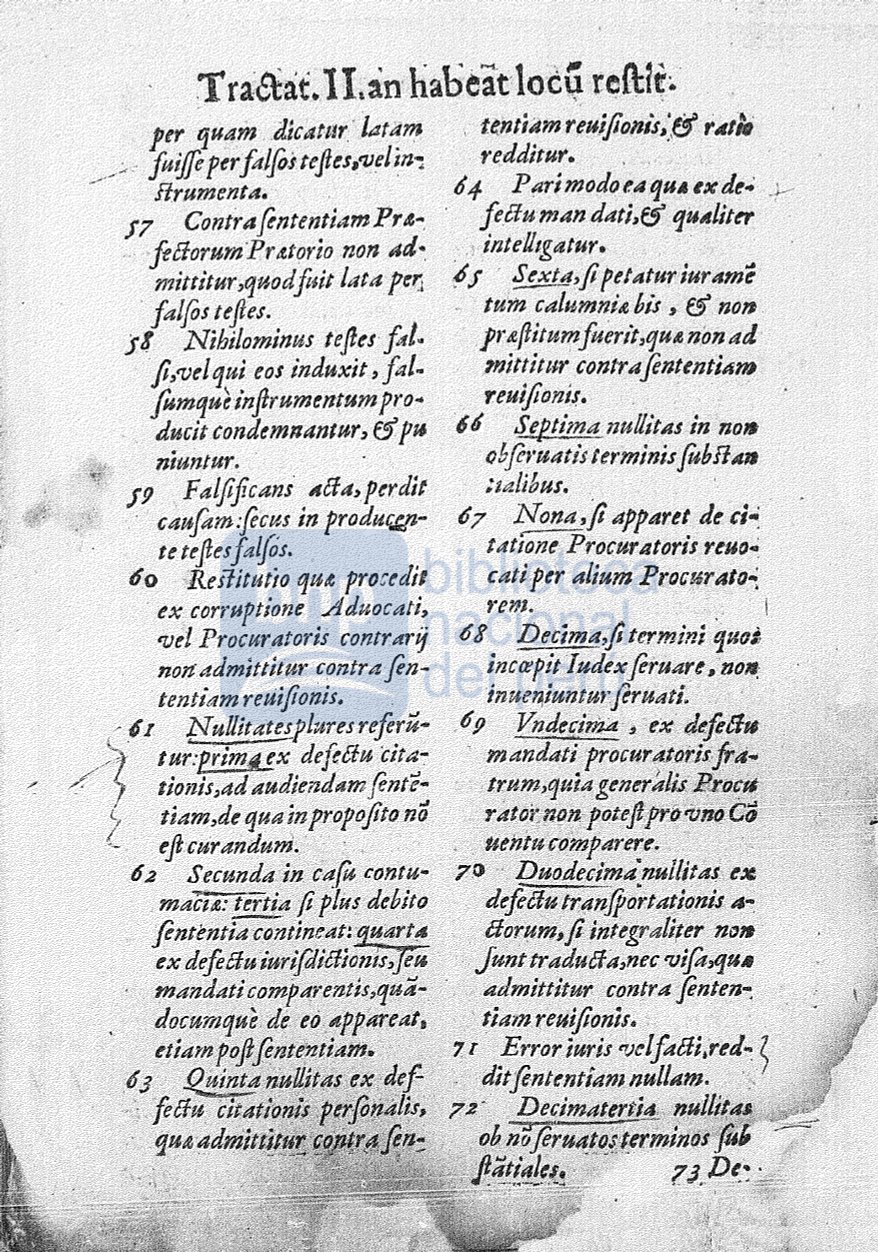 Tractat. II. an habeãt locũ restit.
per quam dicatur latam
fuisse per falsos testes, vel in-
strumenta.
57 Contra sententiam Præ-
fectorum Prætorio non ad-
mittitur, quod fuit lata per
falsos testes.
58 Nihilominus testes fal-
si, vel qui eos induxit, fal-
sumquè instrumentum pro-
ducit condemnantur, & pu
niuntur.
59 Falsificans acta, perdit
causam: secus in producen-
te testes falsos.
60 Restitutio quæ procedit
ex corruptione Aduocati,
vel Procuratoris contrarij
non admittitur contra sen-
tentiam reuisionis.
61 Nullitates plures referũ-
tur: prima ex defectu cita-
tionis, ad audiendam sentẽ-
tiam, de qua in proposito nõ
est curandum.
62 Secunda in casu contu-
maciæ: tertia si plus debito
sententia contineat: quarta
ex defectu iurisdictionis, seu
mandati comparentis, quã-
documquè de eo appareat,
etiam post sententiam.
63 Quinta nullitas ex def-
fectu citationis personalis,
quæ admittitur contra sen-
tentiam reuisionis, & ratio
redditur.
64 Pari modo ea quæ ex de-
fectu man dati, & qualiter
intelligatur.
65 Sexta, si petatur iuramẽ
tum calumniæ bis, & non
præstitum fuerit, quæ non ad
mittitur contra sententiam
reuisionis.
66 Septima nullitas in non
obseruatis terminis substan
tialibus.
67 Nona, si apparet de ci-
tatione Procuratoris reuo-
cati per alium Procurato-
rem.
68 Decima, si termini quos
incœpit Iudex seruare, non
inueniuntur seruati.
69 Vndecima, ex defectu
mandati procuratoris fra-
trum, quia generalis Procu
rator non potest pro vno Cõ
uentu comparere.
70 Duodecima nullitas ex
defectu transportationis a-
ctorum, si integraliter non
sunt traducta, nec visa, quæ
admittitur contra senten-
tiam reuisionis.
71 Error iuris vel facti, red-
dit sententiam nullam.
72 Decimatertia nullitas
ob nõ seruatos terminos sub
stãtiales.
73 De-
biblioteca
nacional
del perú
bnp